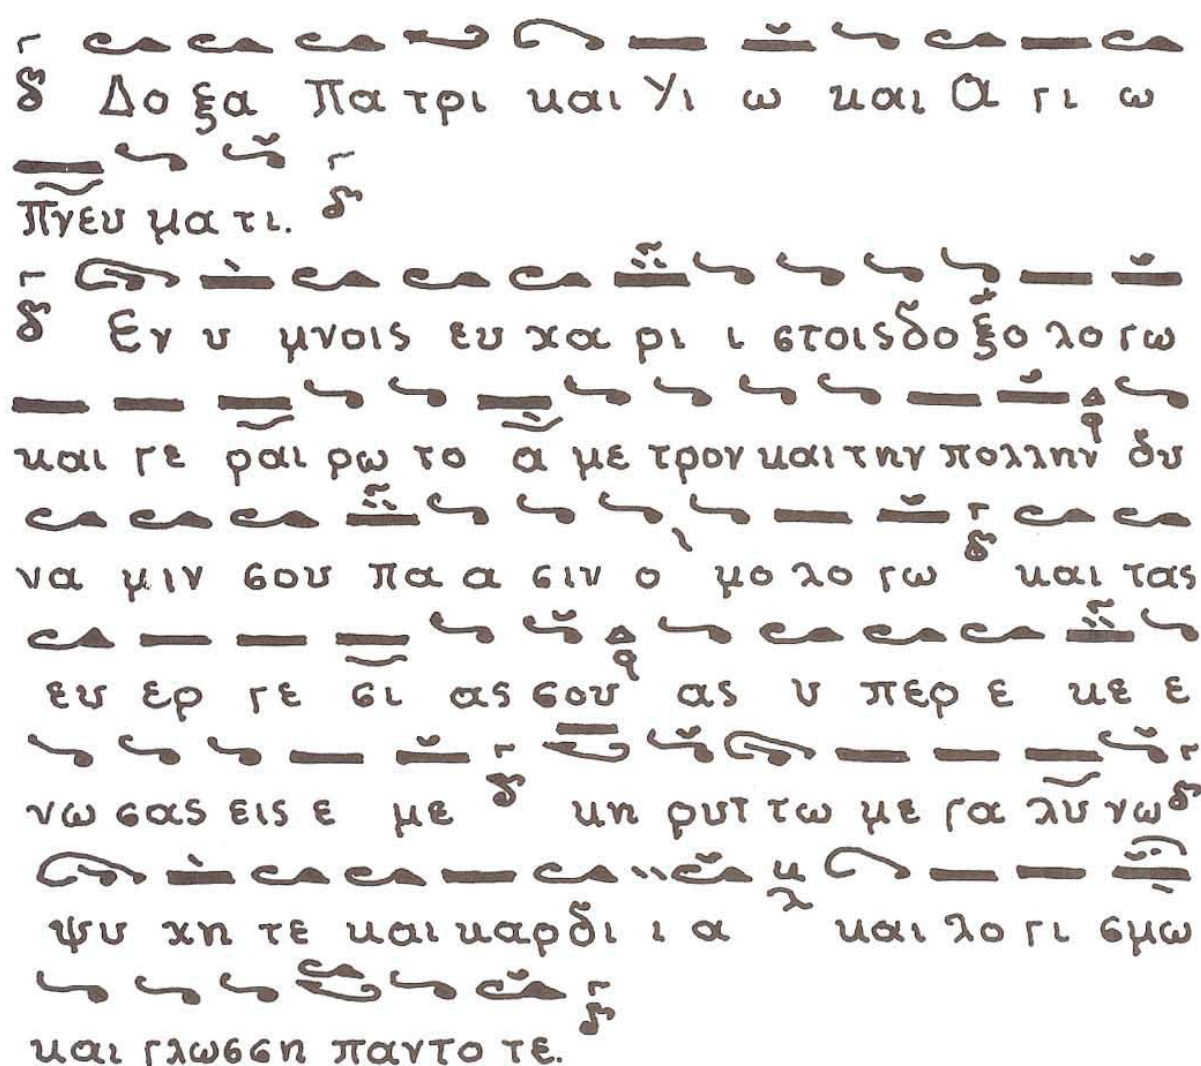 Δο ξα Πα τρι και Υι ω και Α γι ω
Πνευ μα τι.
Εν υ μνοις ευ χα ρι ι στοις δο ξο λο γω
και γε ραι ρω το α με τρον και την πολλην δυ
να μιν σου πα α σιν ο μο λο γω και τας
ευ ερ γε σι ας σου ας υ περ ε κε ε
νω σας εις ε με κη ρυτ τω με γα λυ νω
ψυ χη τε και καρδι ι α και λο γι σμω
και γλωσση παντο τε.